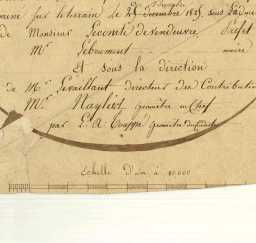 miné sur le terrain le 25 Décembre 1825 sous l'adm
de Monsieur Lecomte de Vendeuvre Préfet
Mr. Lebrument maire
Et sous la direction
de Mr. Gesaillant directeur des Contribution
Mr. Naglest géomètre en Chef
par L. A. Couppé géomètre
Échelle d'un à 10.000